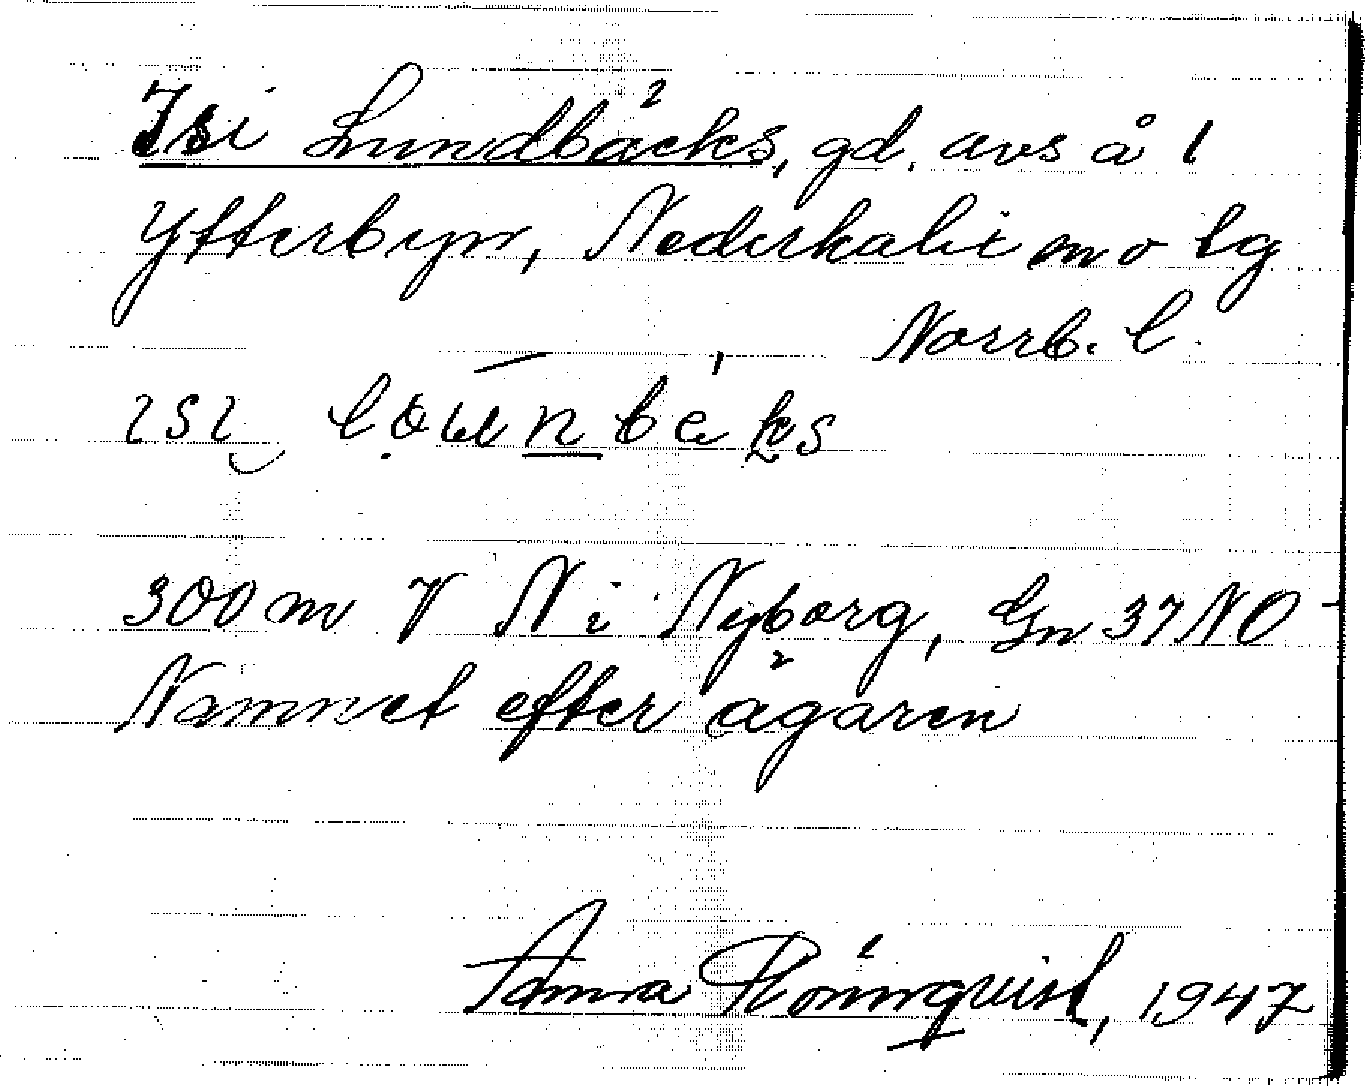 Isi Lundbäcks, gd. avs å l
Ytterbyn, Nederkalix mo tg
Norrb. l.
ısı lounbeks
300 m V N i Nyborg, Gn 37 NO
Namnet efter ägaren
Anna Rönnqvist, 1947